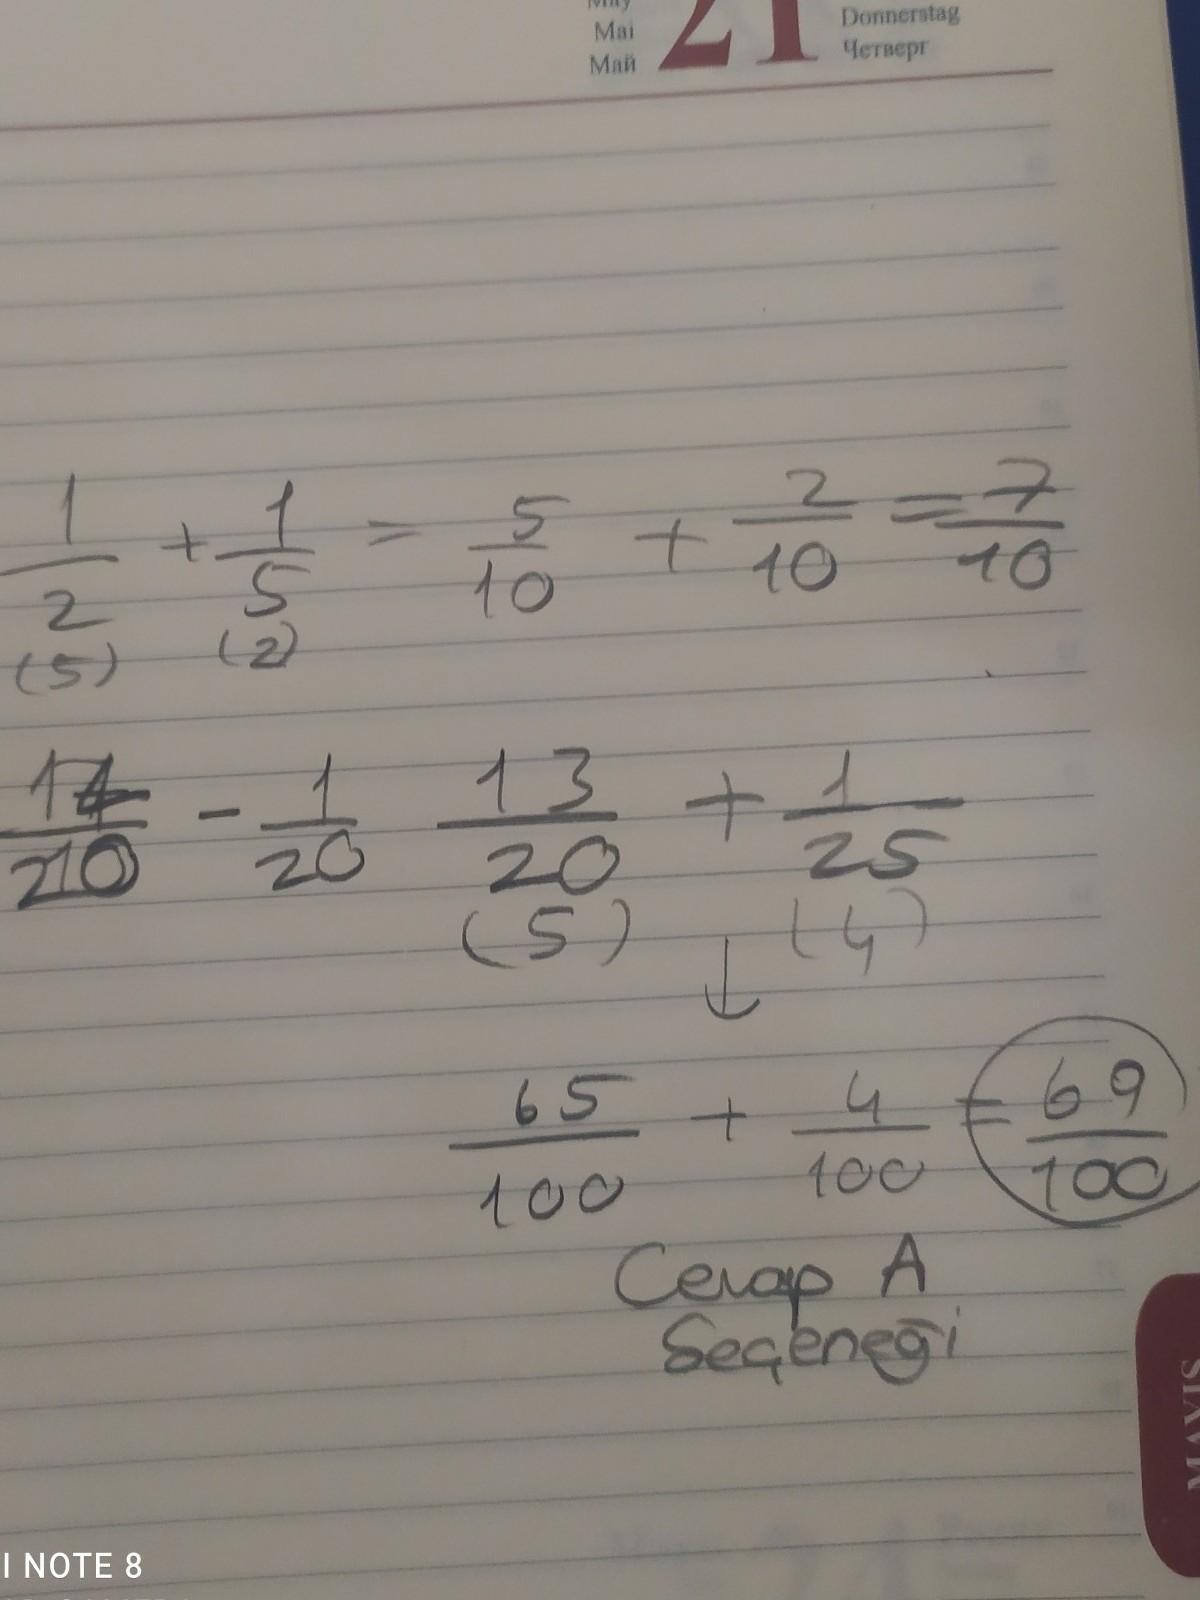 May
Mai
Май
21
Donnerstag
Четверг
1/2 + 1/5 = 5/10 + 2/10 = 7/10
(5) (2)
14/20 - 1/20 13/20 + 1/25
(5) (4)
↓
65/100 + 4/100 = 69/100
Cevap A
Seçeneği
MAYIS
I NOTE 8